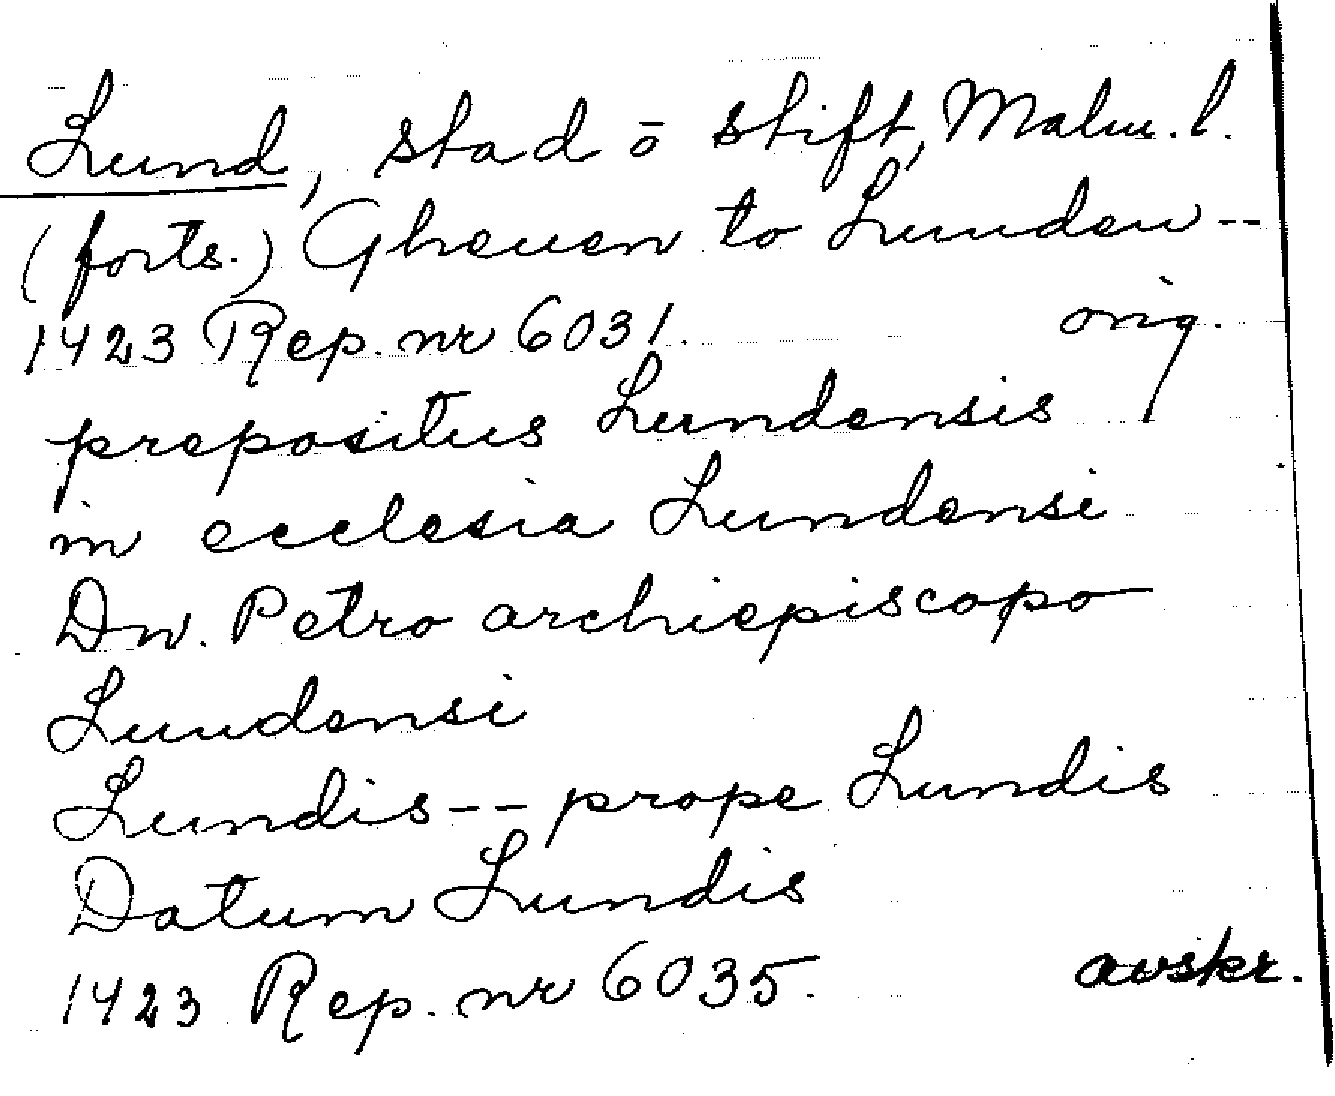 Lund, stad ō stift, Malm. l.
(forts.) Gheuen to Lunden --
1423 Rep. nr 6031. orig.
prepositus Lundensis
in ecclesia Lundensi
Dn. Petro archiepiscopo
Lundensi
Lundis -- prope Lundis
Datum Lundis
1423 Rep. nr 6035. avskr.